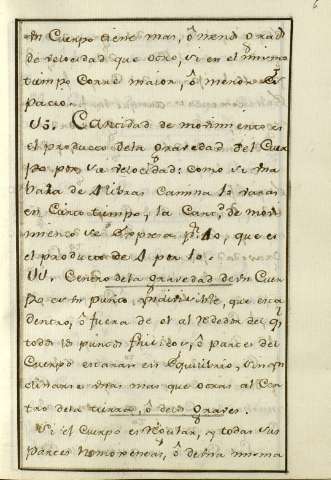 un Cuerpo tiene mas, ô menos grad.
de velocidad que otro, si en el mismo
tiempo corre maior, ô menor Es
pacio.
Cantidad de movimiento es
el producto dela gravedad del Cuer
po por su velocidad: como si una
bala de 4 libras camina 10 varas
en Cierto tiempo, la Cant.d de movi
miento se expresa p.r 40, que es
el producto de 4 por 10.
Centro dela gravedad de un Cuer
po es un punto, yndivisible, que esta
dentro, ô fuera de el al rededor del q.l
todos los puntos fisicos, ô partes del
Cuerpo estaran en Equilibrio, sin yn
clinarse unas mas que otras al Cen
tro dela tierra, ô delos graves.
Si el Cuerpo es Regular, y todas sus
partes homogeneas, ô de una misma